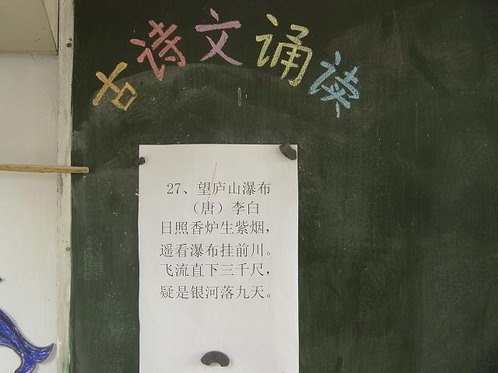 古诗文诵读
27、望庐山瀑布
（唐）李白
日照香炉生紫烟，
遥看瀑布挂前川。
飞流直下三千尺，
疑是银河落九天。